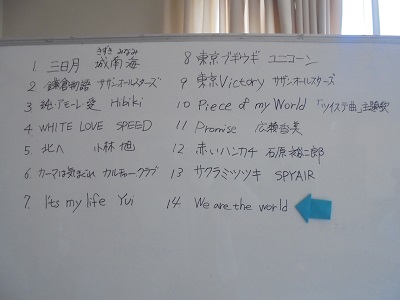 きずき みなみ
1. 三日月 城南海
2. 鎌倉物語 サザンオールスターズ
3 純・アモーレ・愛 Hibiki
4 WHITE LOVE SPEED
5. 北へ 小林旭
6. カーマは気まぐれ カルチャークラブ
7. It's my life Yui
8 東京ブギウギ ユニコーン
9 東京Victory サザンオールスターズ
10 Piece of my World 「ツイステ曲」主題歌
11 Promise 広瀬香美
12 赤いハンカチ 石原裕次郎
13 サクラミツツキ SPYAIR
14 We are the world